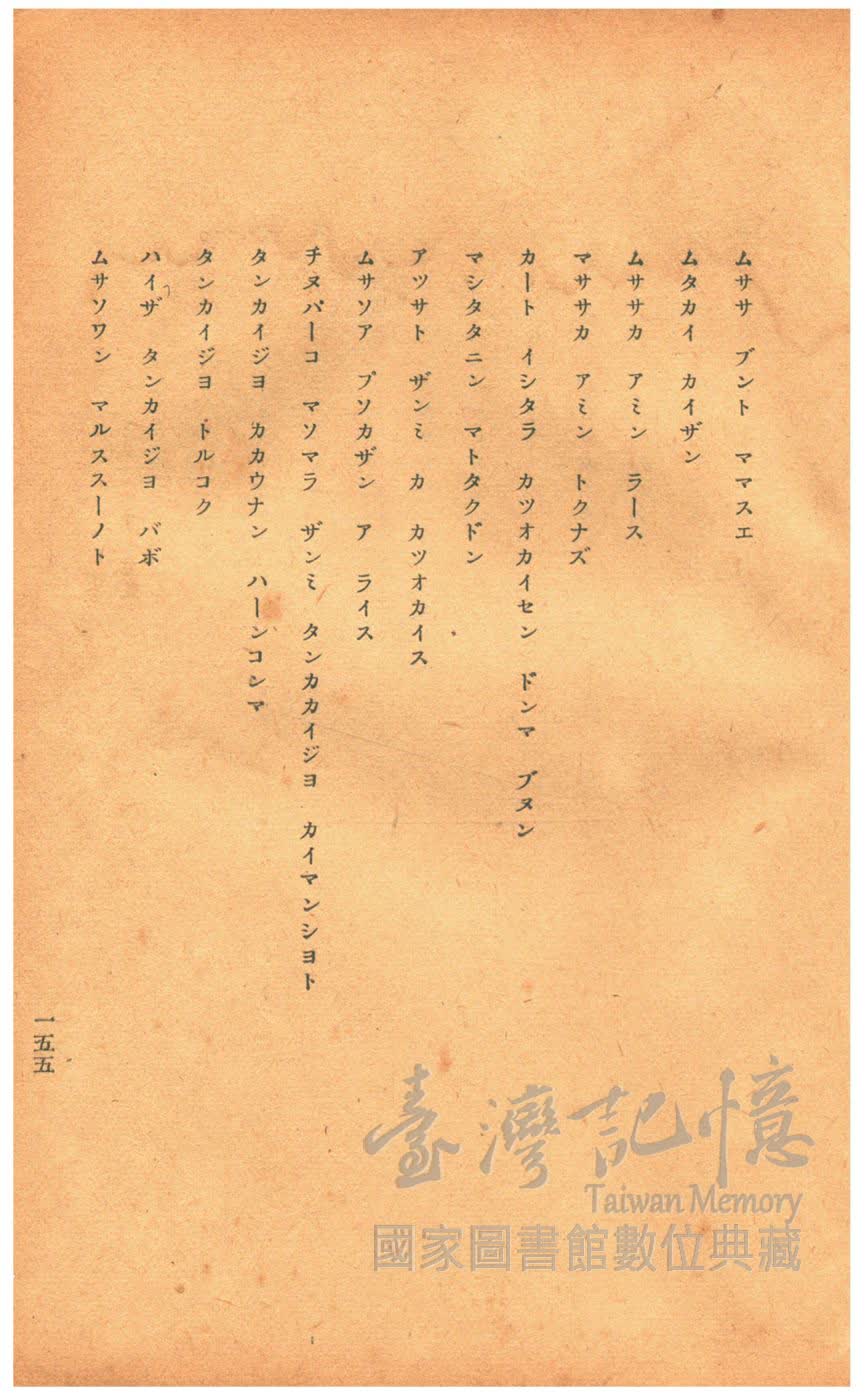 ムササ ブント ママスエ
ムタカイ カイザン
ムササカ アミン ラース
マササカ アミン トクナズ
カート イシタラ カツオカイセン ドンマ ブヌン
マシタタニン マトタクドン
アツサト ザンミ カ カツオカイス
ムサソア プソカザン ア ライス
チヌパーコ マソマラ ザンミ タンカカイジヨ カイマンシヨト
タンカイジヨ カカウナン ハーンコンマ
タンカイジヨ トルコク
ハイザ タンカイジヨ バボ
ムサソワン マルススーノト
一五五
臺灣記憶
Taiwan Memory
國家圖書館數位典藏